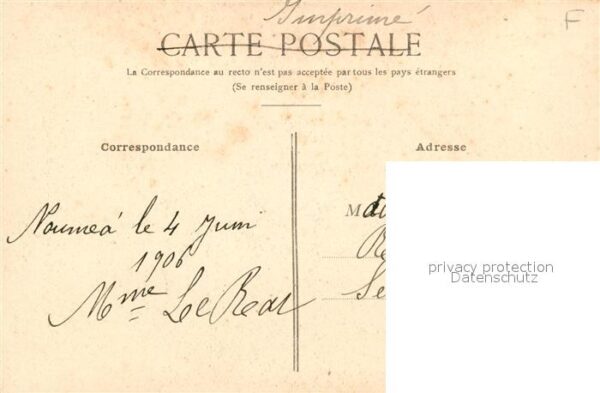 Imprimé
F
CARTE POSTALE
La Correspondance au recto n'est pas acceptée par tous les pays étrangers
(Se renseigner à la Poste)
Correspondance
Nouméa le 4 Juin
1906
Mme Le
Adresse
M
privacy protection
Datenschutz